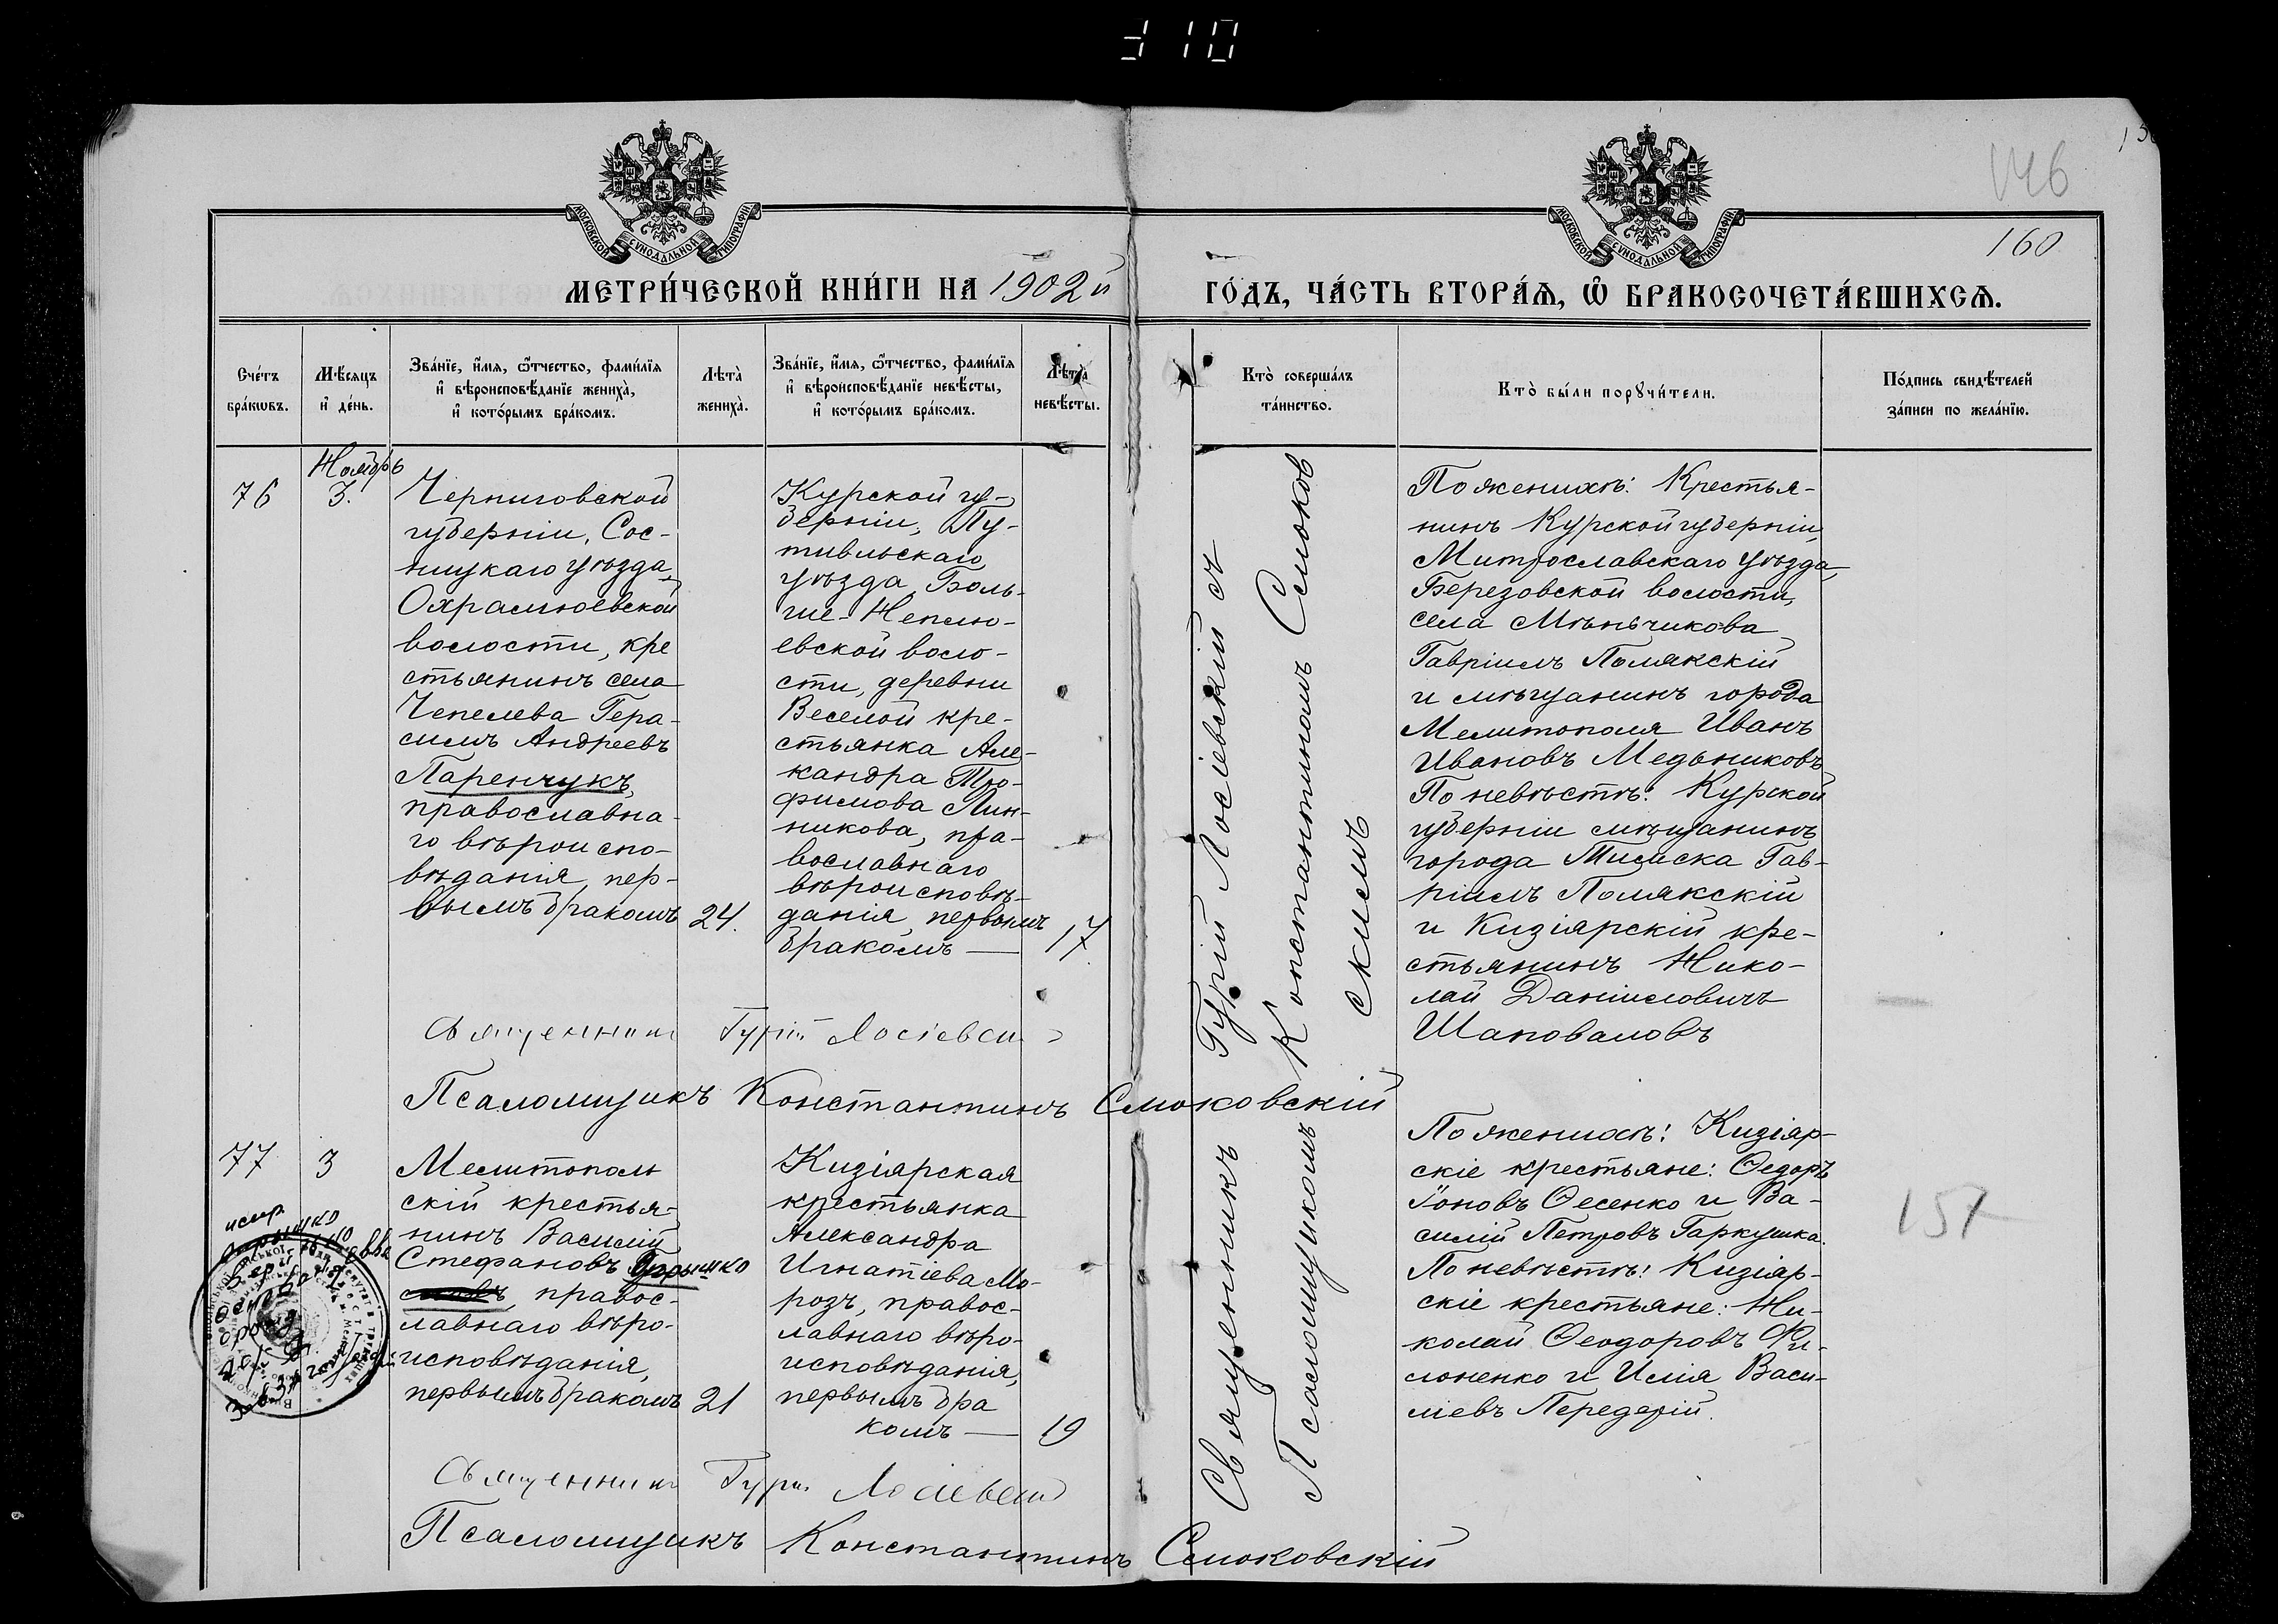 310
146
160
МОСКОВСКОЙ СѴНОДАЛЬНОЙ ТИПОГРАФІИ
МОСКОВСКОЙ СѴНОДАЛЬНОЙ ТИПОГРАФІИ
МЕТРИ́ЧЕСКОЙ КНИ́ГИ НА 1902й
ГО́ДЪ, ЧА́СТЬ ВТОРА́Ѧ, Ѽ БРАКОСОЧЕТА́ВШИХСѦ.
Сче́тъ
бра́кѡвъ.
Мѣ́сяцъ
и҆ де́нь.
Зва́нїе, и҆́мя, ѻ҆́тчество, фами́лїя
и҆ вѣроисповѣ́данїе жениха̀,
и҆ кото́рымъ бра́комъ.
Лѣта̀
жениха̀.
Зва́нїе, и҆́мя, ѻ҆́тчество, фами́лїя
и҆ вѣроисповѣ́данїе невѣ́сты,
и҆ кото́рымъ бра́комъ.
Лѣта̀
невѣ́сты.
Кто̀ соверша́лъ
та́инство.
Кто̀ бы́ли порꙋчи́тели.
По́дпись свидѣ́телей
за́писи по жела́нїю.
76
Ноябрь
3.
Черниговской
губерніи, Сос-
ницкаго уѣзда,
Охрамѣевской
волости, кре
стьянинъ села
Чепелева Гера-
симъ Андреевъ
Паренчукъ,
православна-
го вѣроиспо-
вѣданія, пер-
вымъ бракомъ
24.
Курской гу-
берніи, Пу-
тивльскаго
уѣзда, Боль-
ше-Неплю-
евской воло-
сти, деревни
Веселой кре-
стьянка Але-
кандра Тро-
фимова Лин-
никова, пра-
вославнаго
вѣроисповѣ-
данія, первымъ
бракомъ —
17
Священникъ Гурій Лосіевскій съ
Псаломщикомъ Константиномъ Смоков
скимъ
По женихѣ: Крестья-
нинъ Курской губерніи,
Митрославскаго уѣзда,
Березовской волости,
села Мѣньчикова
Гавріилъ Полякскій
и мѣщанинъ города
Мелитополя Иванъ
Ивановъ Медьниковъ
По невѣстѣ: Курской
губерніи мѣщанинъ
города Мисиска Гав-
ріилъ Полякскій
и Кизіярскій кре-
стьянинъ Нико-
лай Даніиловичъ
Шаповаловъ
Священникъ Гурій Лосіевскі
Псаломщикъ Константинъ Смоковскій
77
3
Мелитополь
скій крестья-
нинъ Василій
Стефановъ
православ-
лавнаго вѣро-
исповѣданія,
первымъ бракомъ
21
Кизіярская
крестьянка
Александра
Игнатіева Мо-
розъ, правос-
лавнаго вѣро-
исповѣданія,
первымъ бра
комъ —
19
По женихѣ: Кизіяр-
скіе крестьяне: Ѳедоръ
Іоновъ Ѳесенко и Ва-
силій Петровъ Гаркушка.
По невѣстѣ: Кизіяр-
скіе крестьяне: Ни-
колай Ѳеодоровъ Фи-
лоненко и Илія Васи-
ліевъ Передерій.
157
Священникъ Гурій Лосіевскі
Псаломщикъ Константинъ Смоковскій